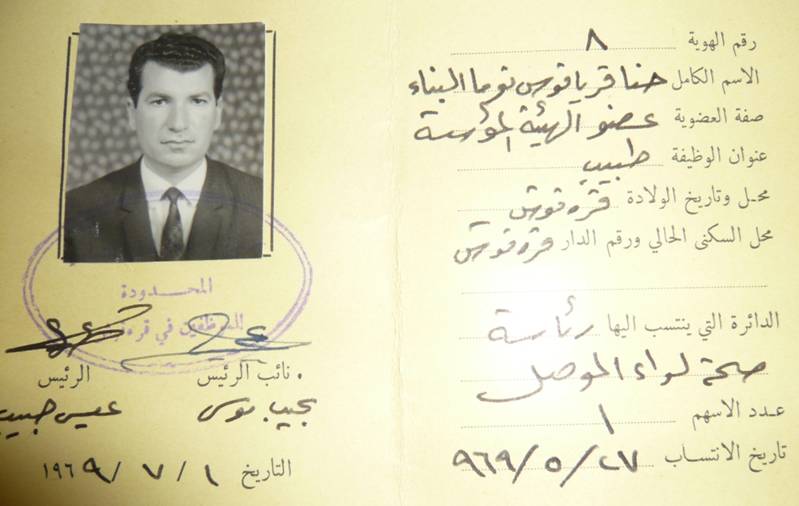 رقم الهوية ٨
الاسم الكامل حنا قرياقوس توما البناء
صفة العضوية عضو الهيئة المؤسسة
عنوان الوظيفة طبيب
محل وتاريخ الولادة قره قوش
محل السكنى الحالي ورقم الدار قره قوش
الدائرة التي ينتسب اليها رئاسة
صحة لواء الموصل
عدد الاسهم ١
تاريخ الانتساب ٩٦٩/٥/٢٧
المحدودة
للموظفين في قره
نائب الرئيس
الرئيس
نجيب موسى
عيسى حبيب
التاريخ ١٩٦٩/٧/١